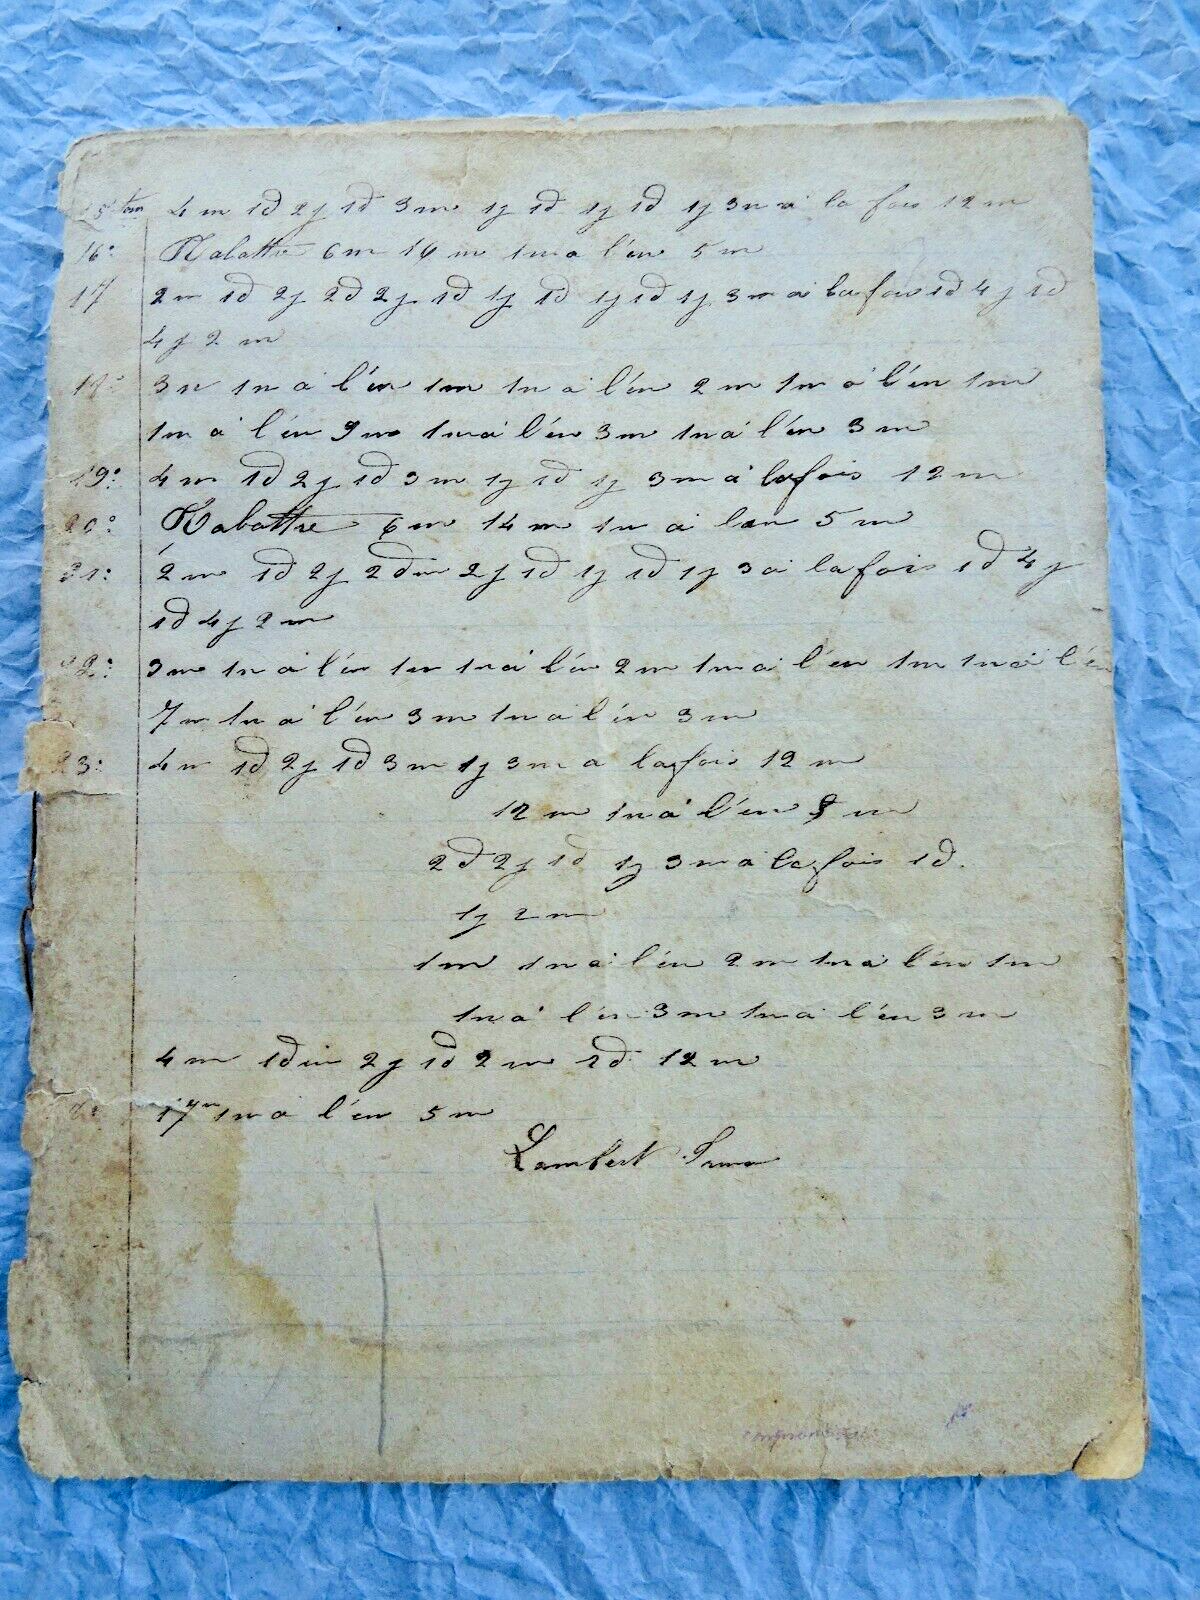 15e tour 4 m 1d 2j 1d 3m 1j 1d 1j 1d 1j 3m à la fois 12 m
16° Rabattre 6m 14 m 1m à l'en 5 m
17 2 m 1d 2j 2d 2j 1d 1j 1d 1j 1d 1j 3m à la fois 1d 4j 1d
4j 2 m
18° 3m 1m à l'en 1m 1m à l'en 2 m 1m à l'en 1m
1m à l'en 9m 1m à l'en 3m 1m à l'en 3 m
19° 4 m 1d 2j 1d 3m 1j 1d 1j 3m à la fois 12 m
20° Rabattre 6m 14 m 1m à l'en 5 m
21° 2 m 1d 2j 2d 2j 1d 1j 1d 1j 3 à la fois 1d 4j
1d 4j 2 m
22° 3m 1m à l'en 1m 1m à l'en 2m 1m à l'en 1m 1m à l'en
7m 1m à l'en 3m 1m à l'en 3m
23° 4m 1d 2j 1d 3m 1j 3m à la fois 12 m
12 m 1m à l'en m
2d 2j 1d 1j 3m à la fois 1d.
1j 2m
1m 1m à l'en 2m 1m à l'en 1m
1m à l'en 3m 1m à l'en 3m
4m 1d 2j 1d 2m 1d 12 m
17m 1m à l'en 5 m
Lambert